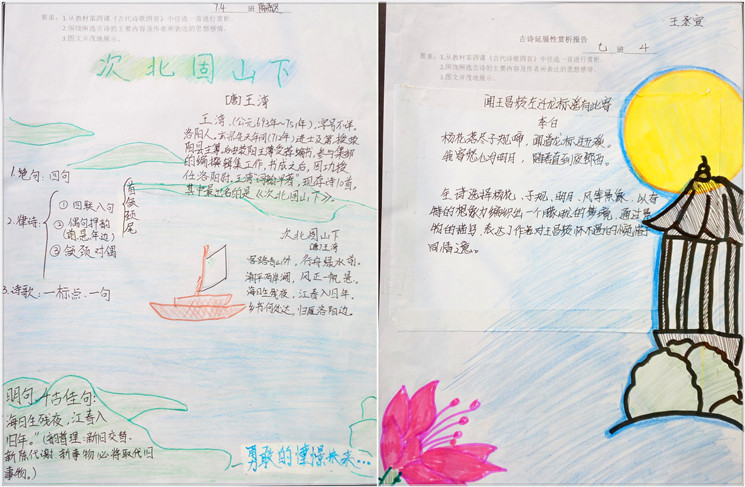 7.4 班
要求：1.从教材第四课《古代诗歌四首》中任选一首进行赏析。
2.围绕所选古诗的主要内容及作者所表达的思想感情。
3.图文并茂地展示。
次北固山下
[唐]王湾
王湾，(公元693年~751年)，字号不详。
洛阳人。玄宗先天年间(712年)进士及第，授荥
阳县主簿。后由荥阳主簿受荐编书，参与集部
的编撰辑集工作，书成之后，因功授
任洛阳尉。王湾"词翰早著"，现存诗10首，
其中最出名的是《次北固山下》。
1.绝句：四句
2.律诗：
①四联八句
②偶句押韵
(前是年边)
③颔颈对偶
首
颔
颈
尾
3.诗歌：一标点、一句
次北固山下
[唐]王湾
客路青山外，行舟绿水前。
潮平两岸阔，风正一帆悬。
海日生残夜，江春入旧年。
乡书何处达，归雁洛阳边。
明句，千古佳句：
海日生残夜，江春入
旧年。"(哲理：新旧交替.
新陈代谢 新事物必将取代旧
事物。)
勇敢的憧憬未来…
王圣宣
古诗延展性赏析报告
七 班 4
要求：1.从教材第四课《古代诗歌四首》中任选一首进行赏析。
2.围绕所选古诗的主要内容及作者所表达的思想感情。
3.图文并茂地展示。
闻王昌龄左迁龙标遥有此寄
李白
杨花落尽子规啼，闻道龙标过五溪。
我寄愁心与明月，随君直到夜郎西。
全诗选择杨花、子规、明月、风等景象，以奇
特的想象力编织出一个朦胧的梦境，通过景
物的描写，表达了作者对王昌龄怀才不遇的惋惜与
同情之意。